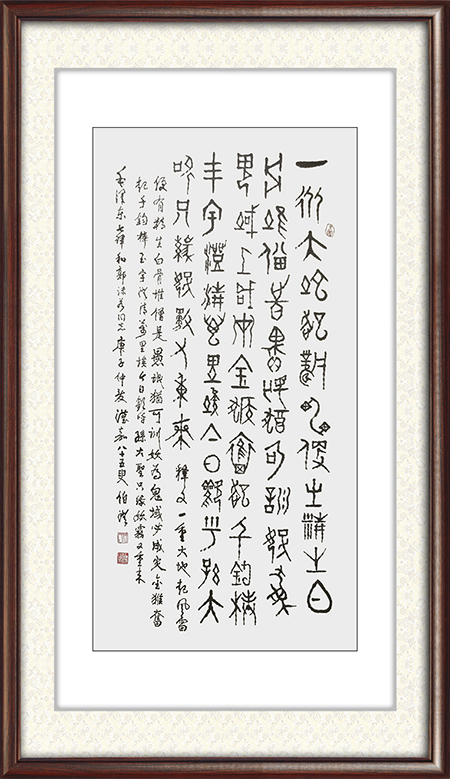 一從大地起風雷便有精生白
骨堆僧是愚氓猶可訓妖為
鬼蜮必成災金猴奮起千鈞棒
玉宇澄清萬里埃今日歡呼孫大
聖只緣妖霧又重來 释文 一重大地起风雷
便有精生白骨堆僧是愚氓犹可训妖为鬼蜮必成灾金猴奋
起千钧棒玉宇澄清万里埃今日欢呼孙大圣只缘妖雾又重来
毛泽东七律和郭沫若同志 庚子仲 八十五叟 伯